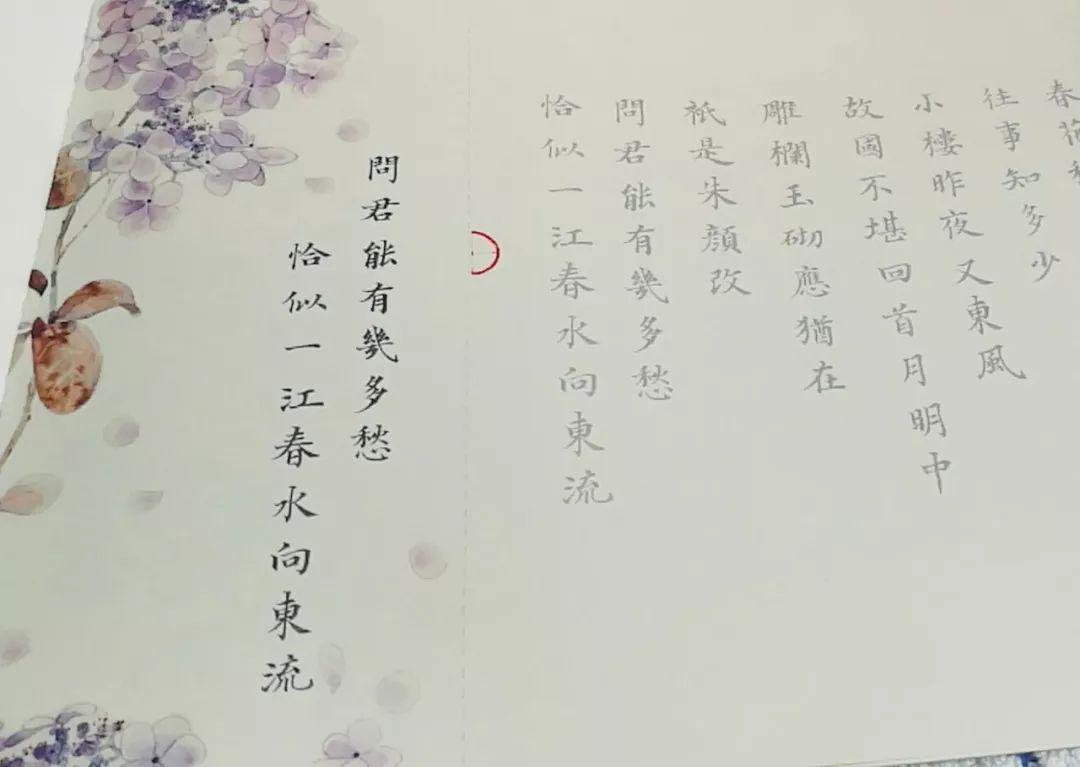 春
往事知多少
小樓昨夜又東風
故國不堪回首月明中
雕欄玉砌應猶在
祇是朱顏改
問君能有幾多愁
恰似一江春水向東流
問君能有幾多愁
恰似一江春水向東流